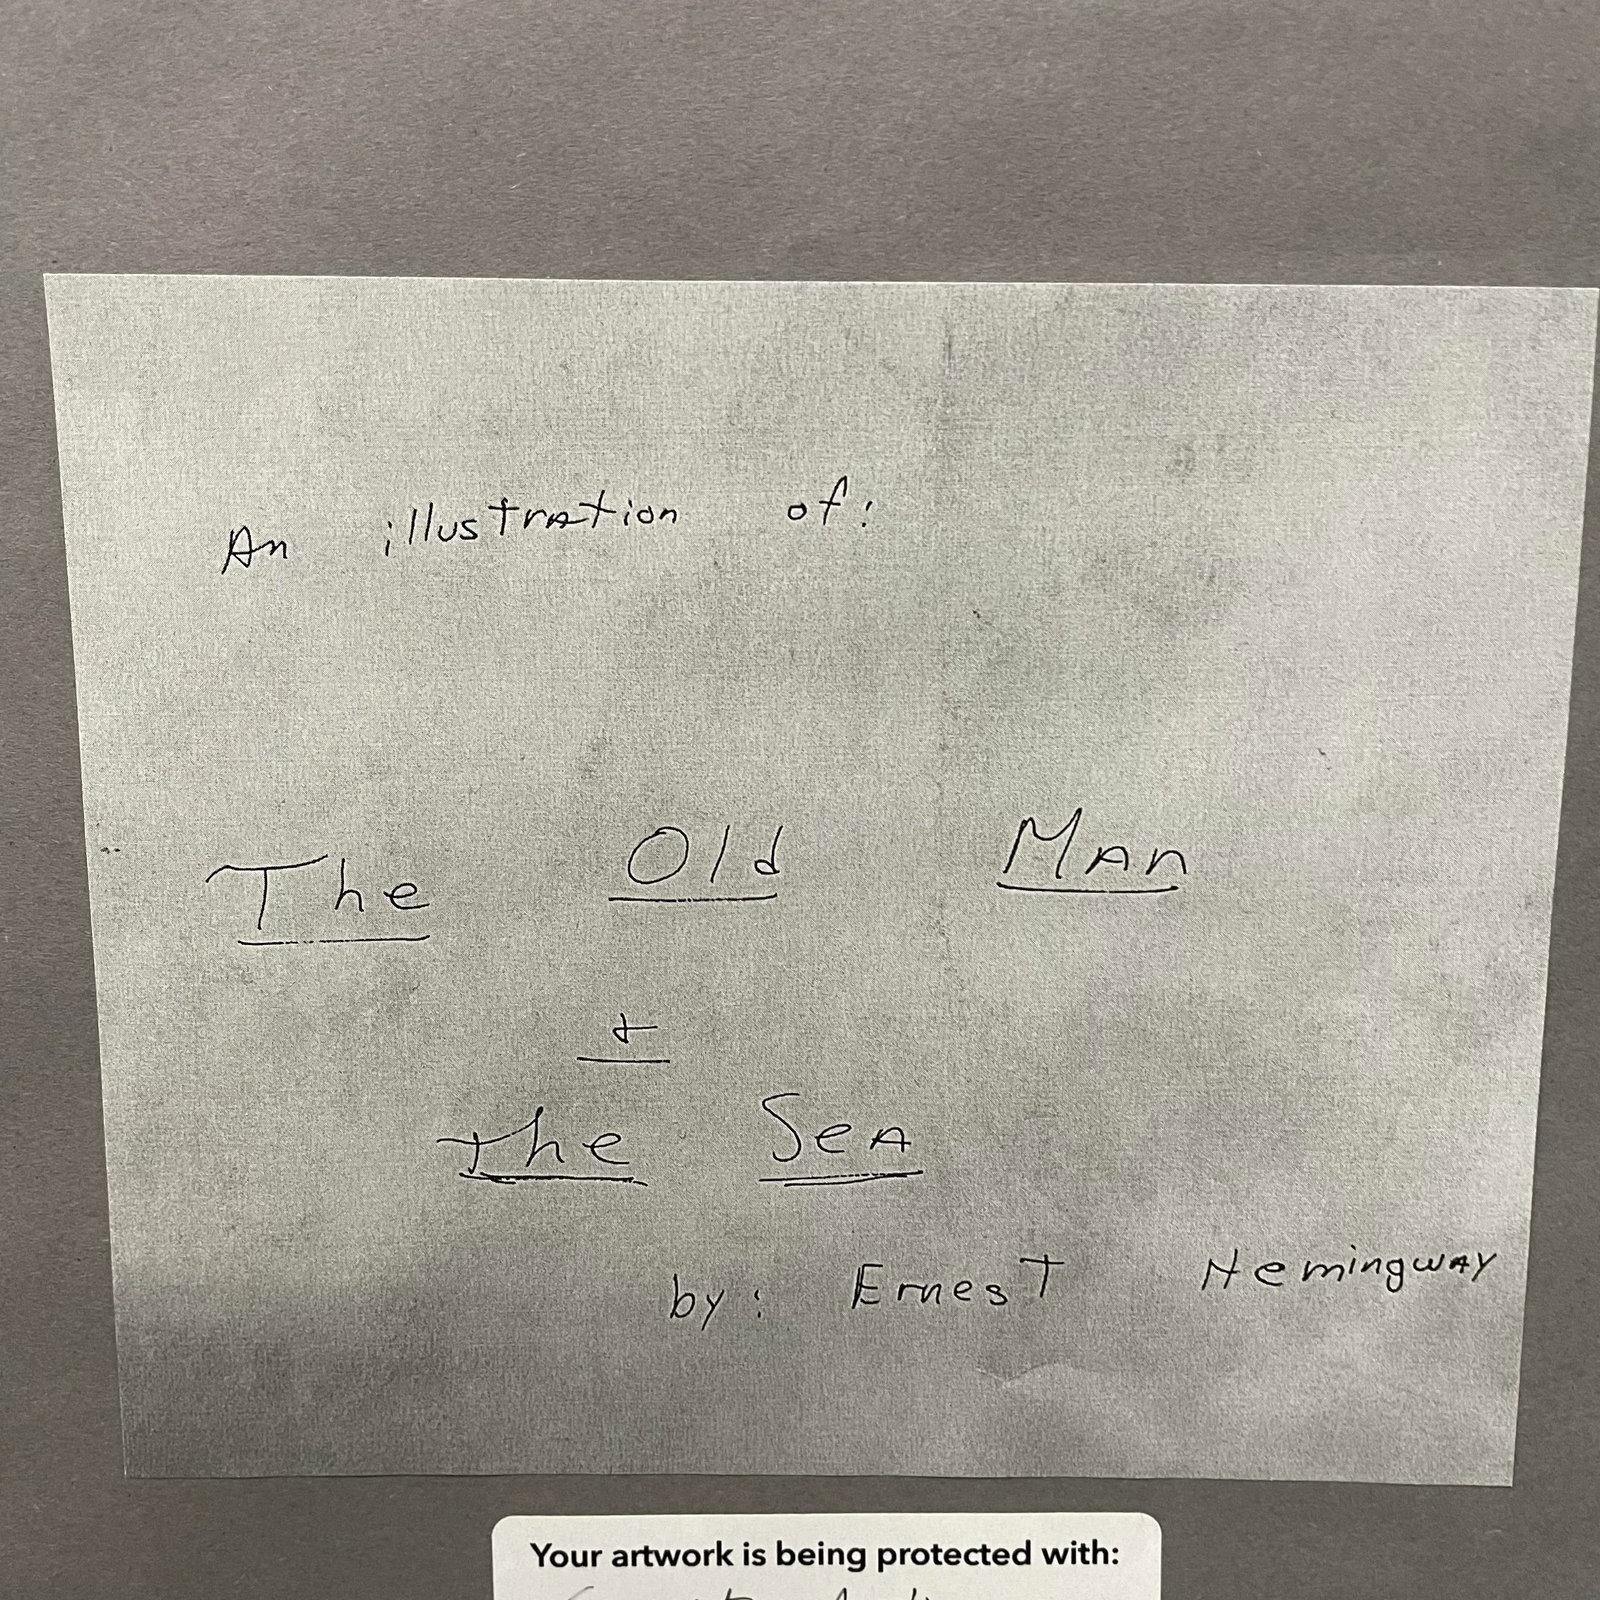 An illustration of:
The Old Man
+
the Sea
by: Ernest Hemingway
Your artwork is being protected with: